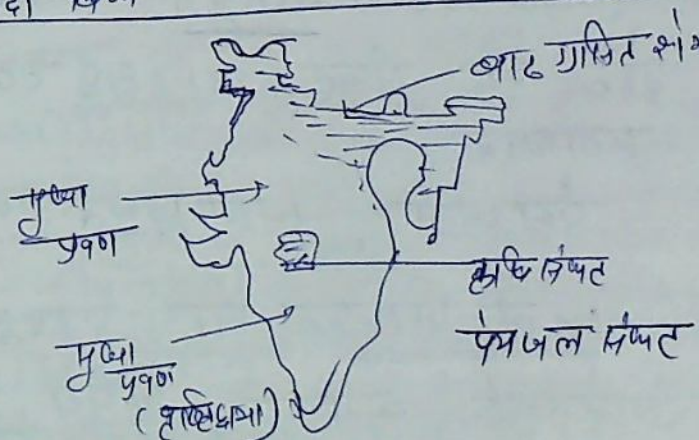 बाढ ग्रसित क्षेत्र
सूखा
प्रवण
कृषि संकट
पेयजल संकट
सूखा
प्रवण